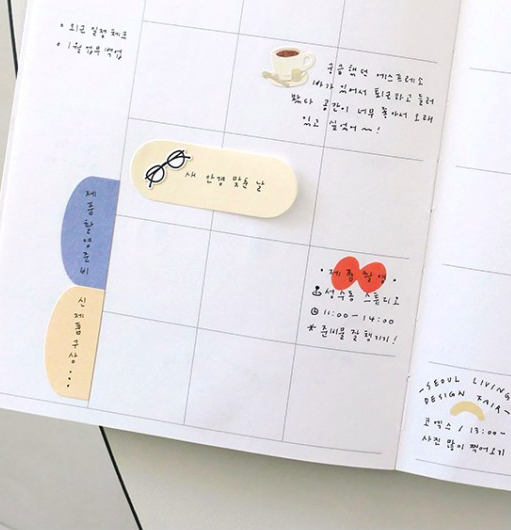 • 외근 일정 체크
• 1월 업무 백업
궁금했던 에스프레소
바가 있어서 퇴근하고 들러
봤다 공간이 너무 좋아서 오래
있고 싶었어~!
새 안경 맞춘 날
제품촬영준비
신제품구상...
• 제품촬영 •
성수동 스튜디오
11:00 - 14:00
* 준비물 잘 챙기기!
SEOUL LIVING
DESIGN FAIR
코엑스 / 13:00-
사진 많이 찍어오기